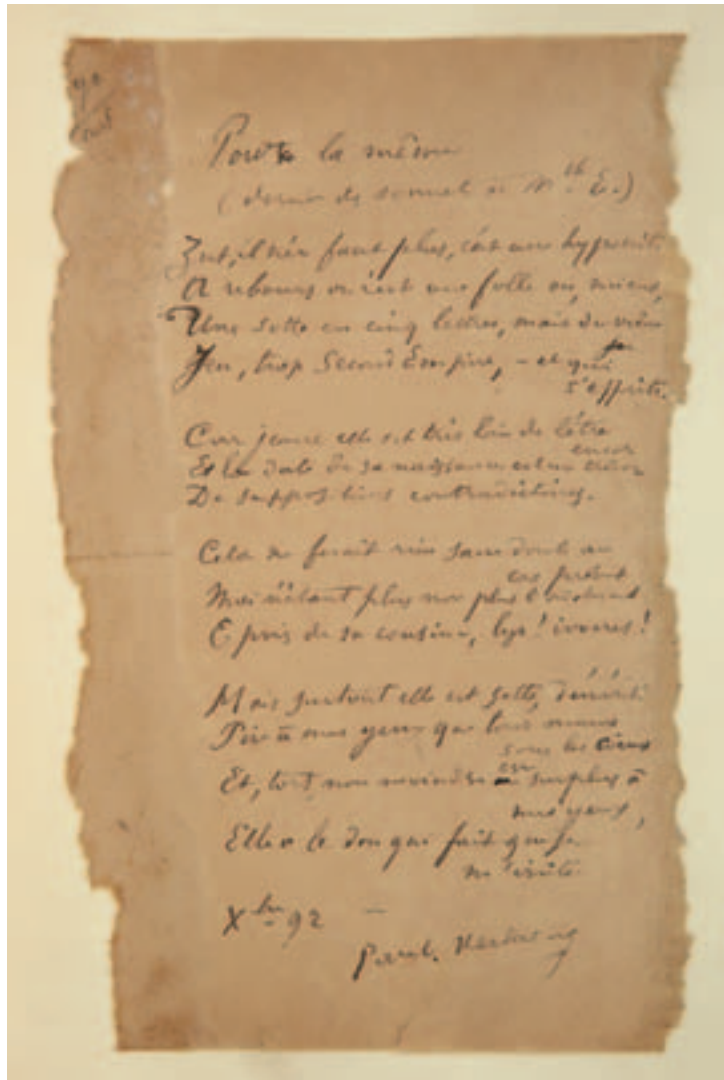 Pour la même
(dernier de sonnet à M E.)
Zut, il n'en faut plus, c'est une hypocrite
A rebours ou c'est une folle ou, mieux,
Une sotte en cinq lettres, mais du vieux
Jeu, trop Second Empire, – et qui
s'effrite.
Car jeune elle est très loin de l'être
encor
Et la date de sa naissance est un
De suppositions contradictoires.
Cela ne ferait rien sans doute au
cas présent
Moi n'étant plus non plus
Épris de sa cousine, lys! ivoires!
Mais surtout elle est sotte, démérite
Pire à mes yeux que tous
sous les cieux
Et, tort non moindre au surplus à
mes yeux,
Elle a le don qui fait que je
m'irrite.
Xbre 92 –
Paul Verlaine